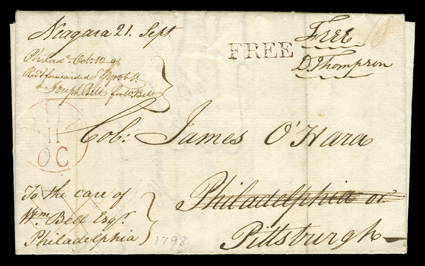 Niagara 21. Sept.
FREE
Free
D Thompson
Philad. Oct. 10. 98
Joseph Bell for W Bell
11
OC
Col: James O'Hara
Philadelphia or
Pittsburgh
To the care of
Wm Bell Esqr
Philadelphia
1798